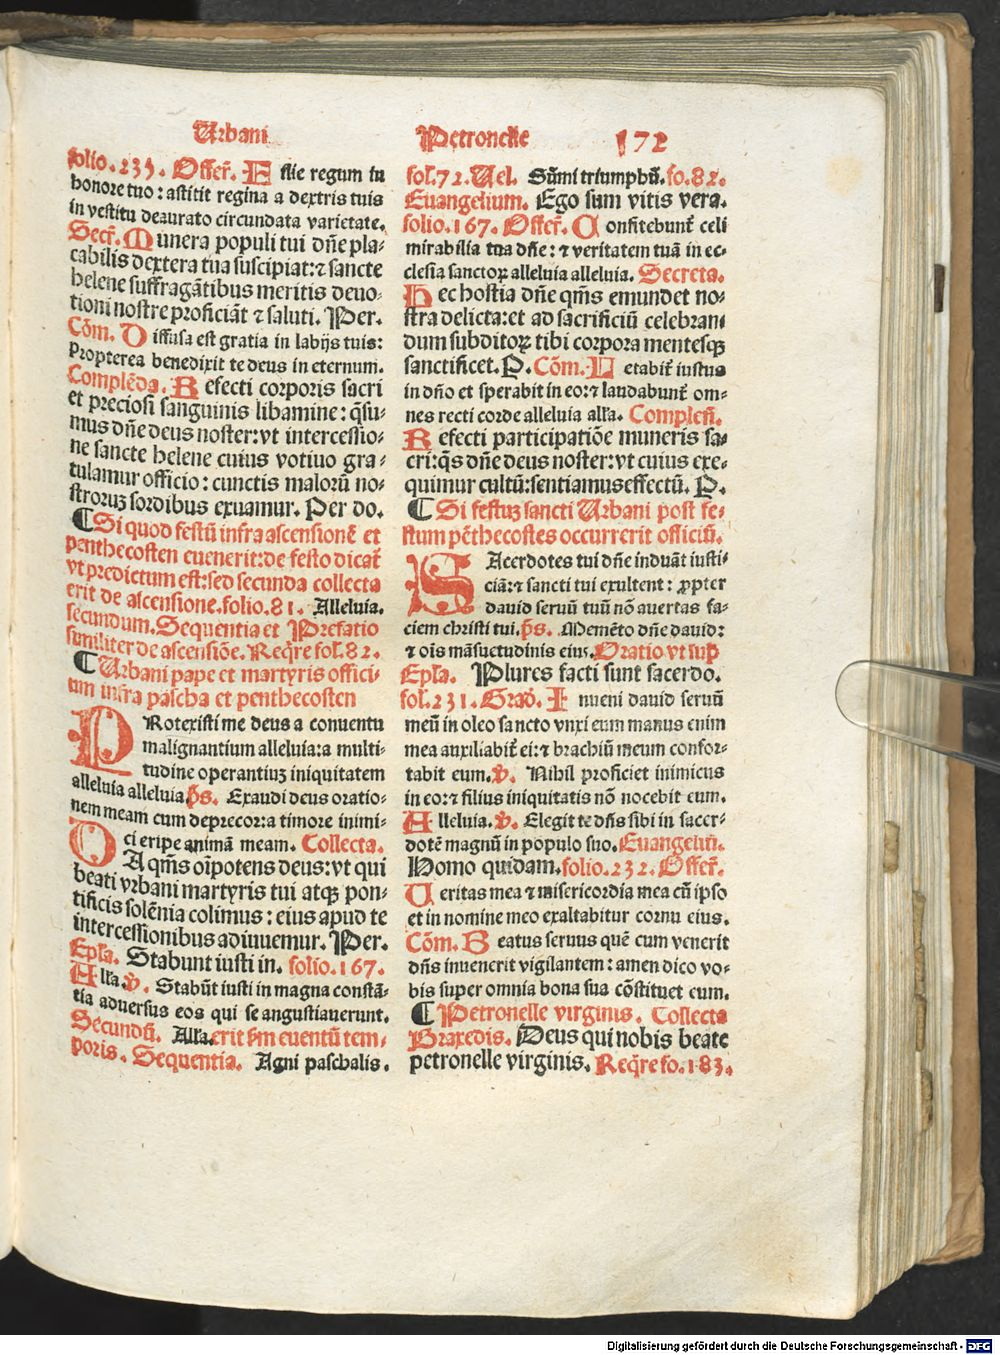 Urbani
folio.235. Offer̄. F ilie regum in
honore tuo: astitit regina a dextris tuis
in vestitu deaurato circundata varietate.
Secr̄. Munera populi tui dn̄e pla⸗
cabilis dextera tua suscipiat:⁊ sancte
helene suffragātibus meritis deuo⸗
tioni nostre proficiāt ⁊ saluti. Per.
Cōm. Diffusa est gratia in labijs tuis:
Propterea benedixit te deus in eternum.
Complēda. Refecti corporis sacri
et preciosi sanguinis libamine: q̄su⸗
mus dn̄e deus noster: vt intercessio⸗
ne sancte helene cuius votiuo gra⸗
tulamur officio: cunctis malorū no⸗
stroruꝫ sordibus exuamur. Per do.
¶Si quod festū infra ascensionē et
penthecosten euenerit: de festo dicat̄
vt predictum est: sed secunda collecta
erit de ascensione. folio.81. Alleluia.
secundum. Sequentia et Prefatio
similiter de ascensiōe. Req̄re fol.82.
¶Urbani pape et martyris offici⸗
um infra pascha et penthecosten
PRotexisti me deus a conuentu
malignantium alleluia: a multi⸗
tudine operantiuꝫ iniquitatem
alleluia alleluia. p̄s. Exaudi deus oratio⸗
nem meam cum deprecor: a timore inimi⸗
ci eripe animā meam. Collecta.
DA qm̄s oīpotens deus: vt qui
beati vrbani martyris tui atqꝫ pon⸗
tificis solēnia colimus: eius apud te
intercessionibus adiuuemur. Per.
Epl̄a. Stabunt iusti in. folio.167.
All̄a. v̄. Stabūt iusti in magna constā⸗
tia aduersus eos qui se angustiauerunt.
Secundū. All̄a. erit s̄m euentū tem⸗
poris. Sequentia. Agni paschalis.
Petronelle 172
fol.72. Uel. Sūmi triumphū. fo.82.
Euangelium. Ego sum vitis vera.
folio.167. Offer̄. Confitebunt̄ celi
mirabilia tua dn̄e: ⁊ veritatem tuā in ec⸗
clesia sanctoꝝ alleluia alleluia. Secreta.
Hec hostia dn̄e qm̄s emundet no⸗
stra delicta: et ad sacrificiū celebran⸗
dum subditoꝝ tibi corpora mentesqꝫ
sanctificet. P. Cōm. Letabit̄ iustus
in dn̄o et sperabit in eo: ⁊ laudabunt̄ om⸗
nes recti corde alleluia all̄a. Complen̄.
Refecti participatiōe muneris sa⸗
cri: q̄s dn̄e deus noster: vt cuius exe⸗
quimur cultū: sentiamus effectū. P.
¶Si festuꝫ sancti Urbani post fe⸗
stum pēthecostes occurrerit officiū.
SAcerdotes tui dn̄e induāt iusti⸗
ciā: ⁊ sancti tui exultent: ꝓpter
dauid seruū tuū nō auertas fa⸗
ciem christi tui. p̄s. Memēto dn̄e dauid:
⁊ oīs māsuetudinis eius. Oratio vt sup̄
Epl̄a. Plures facti sunt sacerdo.
fol.231. Grad̄. Inueni dauid seruū
meū in oleo sancto vnxi eum manus enim
mea auxiliabit̄ ei: ⁊ brachiū meum confor⸗
tabit eum. v̄. Nihil proficiet inimicus
in eo: ⁊ filius iniquitatis nō nocebit eum.
Alleluia. v̄. Elegit te dn̄s sibi in sacer⸗
dotē magnū in populo suo. Euangeliū.
Homo quidam. folio.232. Offer̄.
Ueritas mea ⁊ misericordia mea cū ipso
et in nomine meo exaltabitur cornu eius.
Cōm. Beatus seruus quē cum venerit
dn̄s inuenerit vigilantem: amen dico vo⸗
bis super omnia bona sua cōstituet eum.
¶Petronelle virginis. Collecta
Praxedis. Deus qui nobis beate
petronelle virginis. Req̄re fo.183.
Digitalisierung gefördert durch die Deutsche Forschungsgemeinschaft - DFG